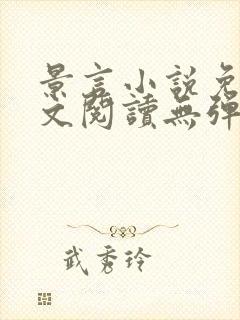 景言小説免
文閱讀無彈
武秀玲